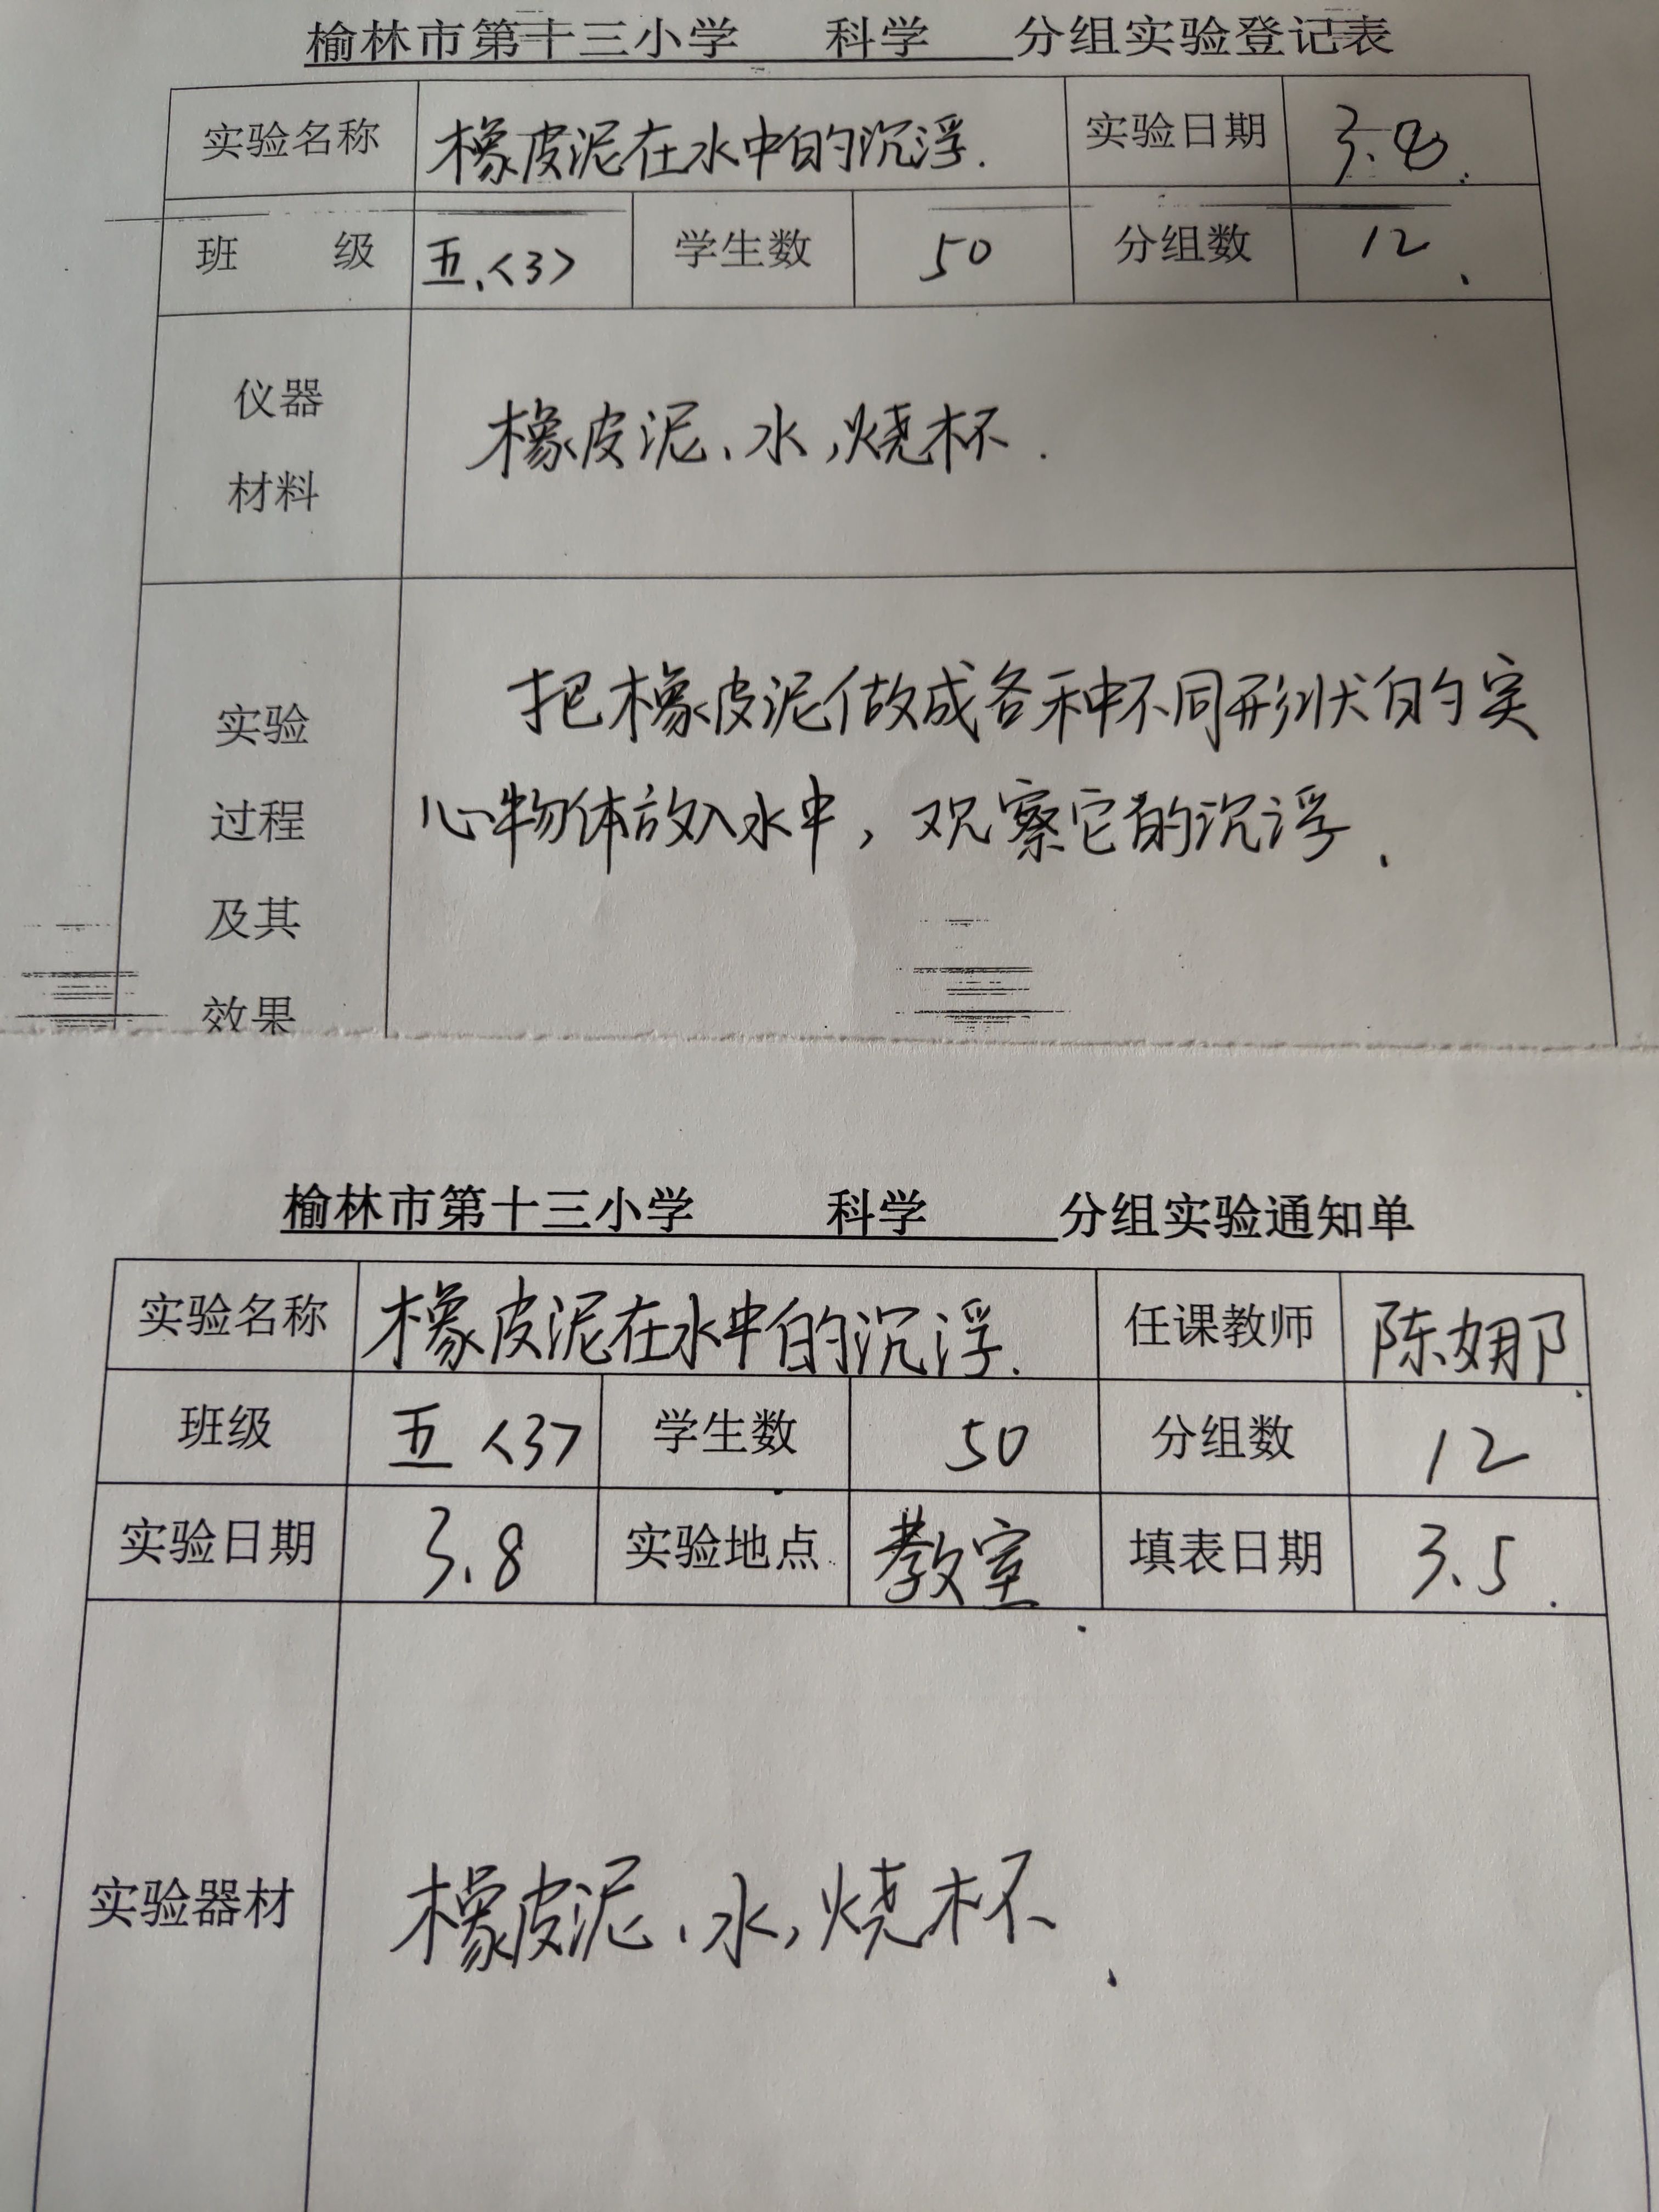 榆林市第十三小学 科学 分组实验登记表
实验名称 橡皮泥在水中的沉浮. 实验日期 3.8.
班 级 五.<3> 学生数 50 分组数 12.
仪器
材料
橡皮泥、水,烧杯.
实验
过程
及其
效果
把橡皮泥做成各种不同形状的实
心物体放入水中,观察它的沉浮.
榆林市第十三小学 科学 分组实验通知单
实验名称 橡皮泥在水中的沉浮. 任课教师 陈娜
班级 五<3> 学生数 50 分组数 12
实验日期 3.8 实验地点 教室 填表日期 3.5.
实验器材 橡皮泥、水,烧杯.